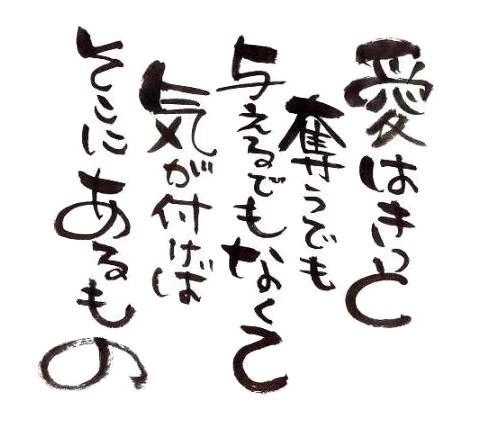 愛はきっと
奪うでも
与えるでもなくて
気が付けば
そこにあるもの